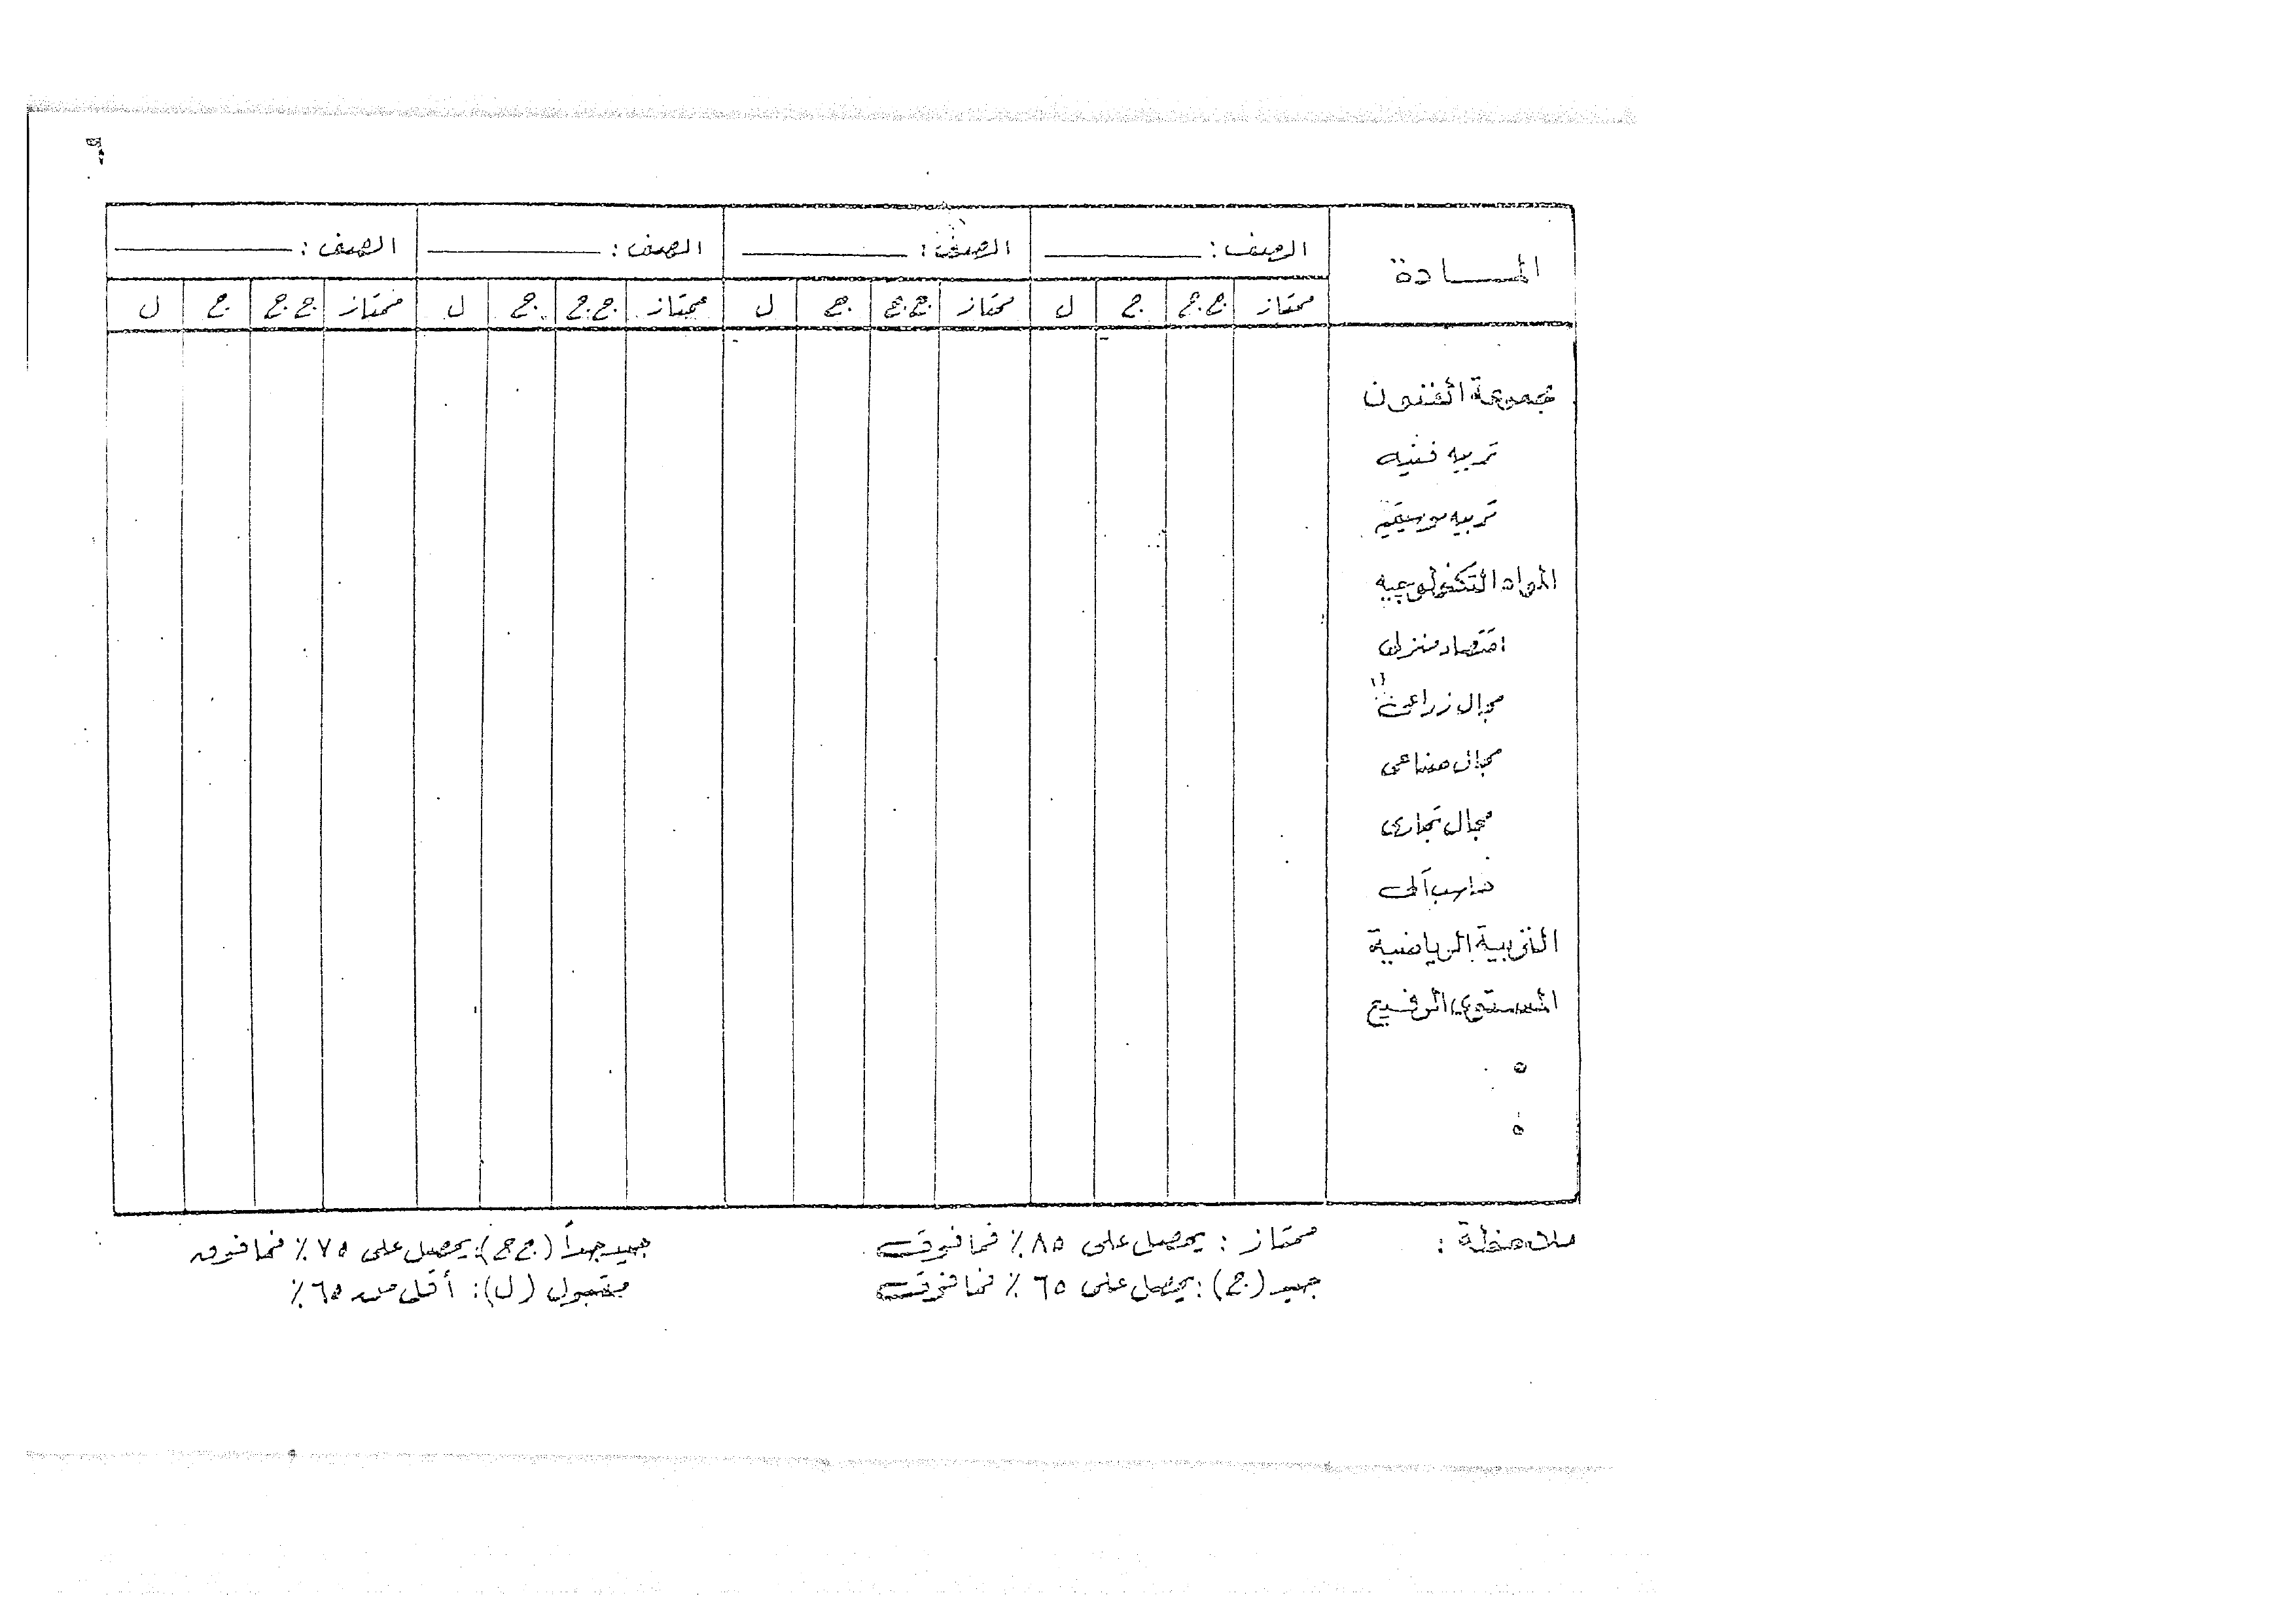 ٦
المــادة الصف : الصف : الصف : الصف :
ممتاز ج.ج ج ل ممتاز ج.ج ج ل ممتاز ج.ج ج ل ممتاز ج.ج ج ل
مجموعة الفنون
تربيه فنيه
تربيه موسيقيه
المواد التكنولوجيه
اقتصاد منزلى
مجال زراعى
مجال صناعى
مجال تجارى
حاسب آلى
التربية الرياضية
المستوى الرفيع
ملاحظة : ممتاز : يحصل على ٨٥٪ فما فوق جيد جداً (ج ج): يحصل على ٧٥٪ فما فوق
جيد (ج): يحصل على ٦٥٪ فما فوق مقبول (ل): أقل من ٦٥٪